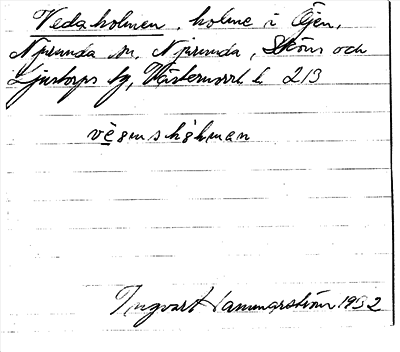 Vedaholmen, holme i Öjen,
Njurunda sn, Njurunda, Sköns och
Ljustorps tg, Västernorrl. l. 213
Ingvart Hammarström 1932